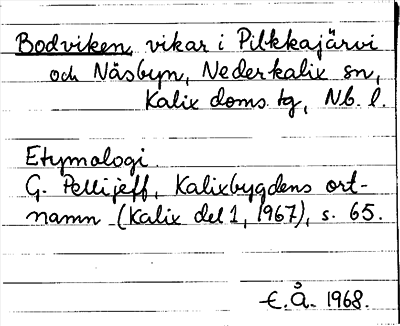 Bodviken, vikar i Pilkkajärvi
och Näsbyn, Nederkalix sn,
Kalix doms. tg, Nb. l.
Etymologi.
G. Pellijeff, Kalixbygdens ort-
namn (Kalix del 1, 1967), s. 65.
E.Å. 1968.